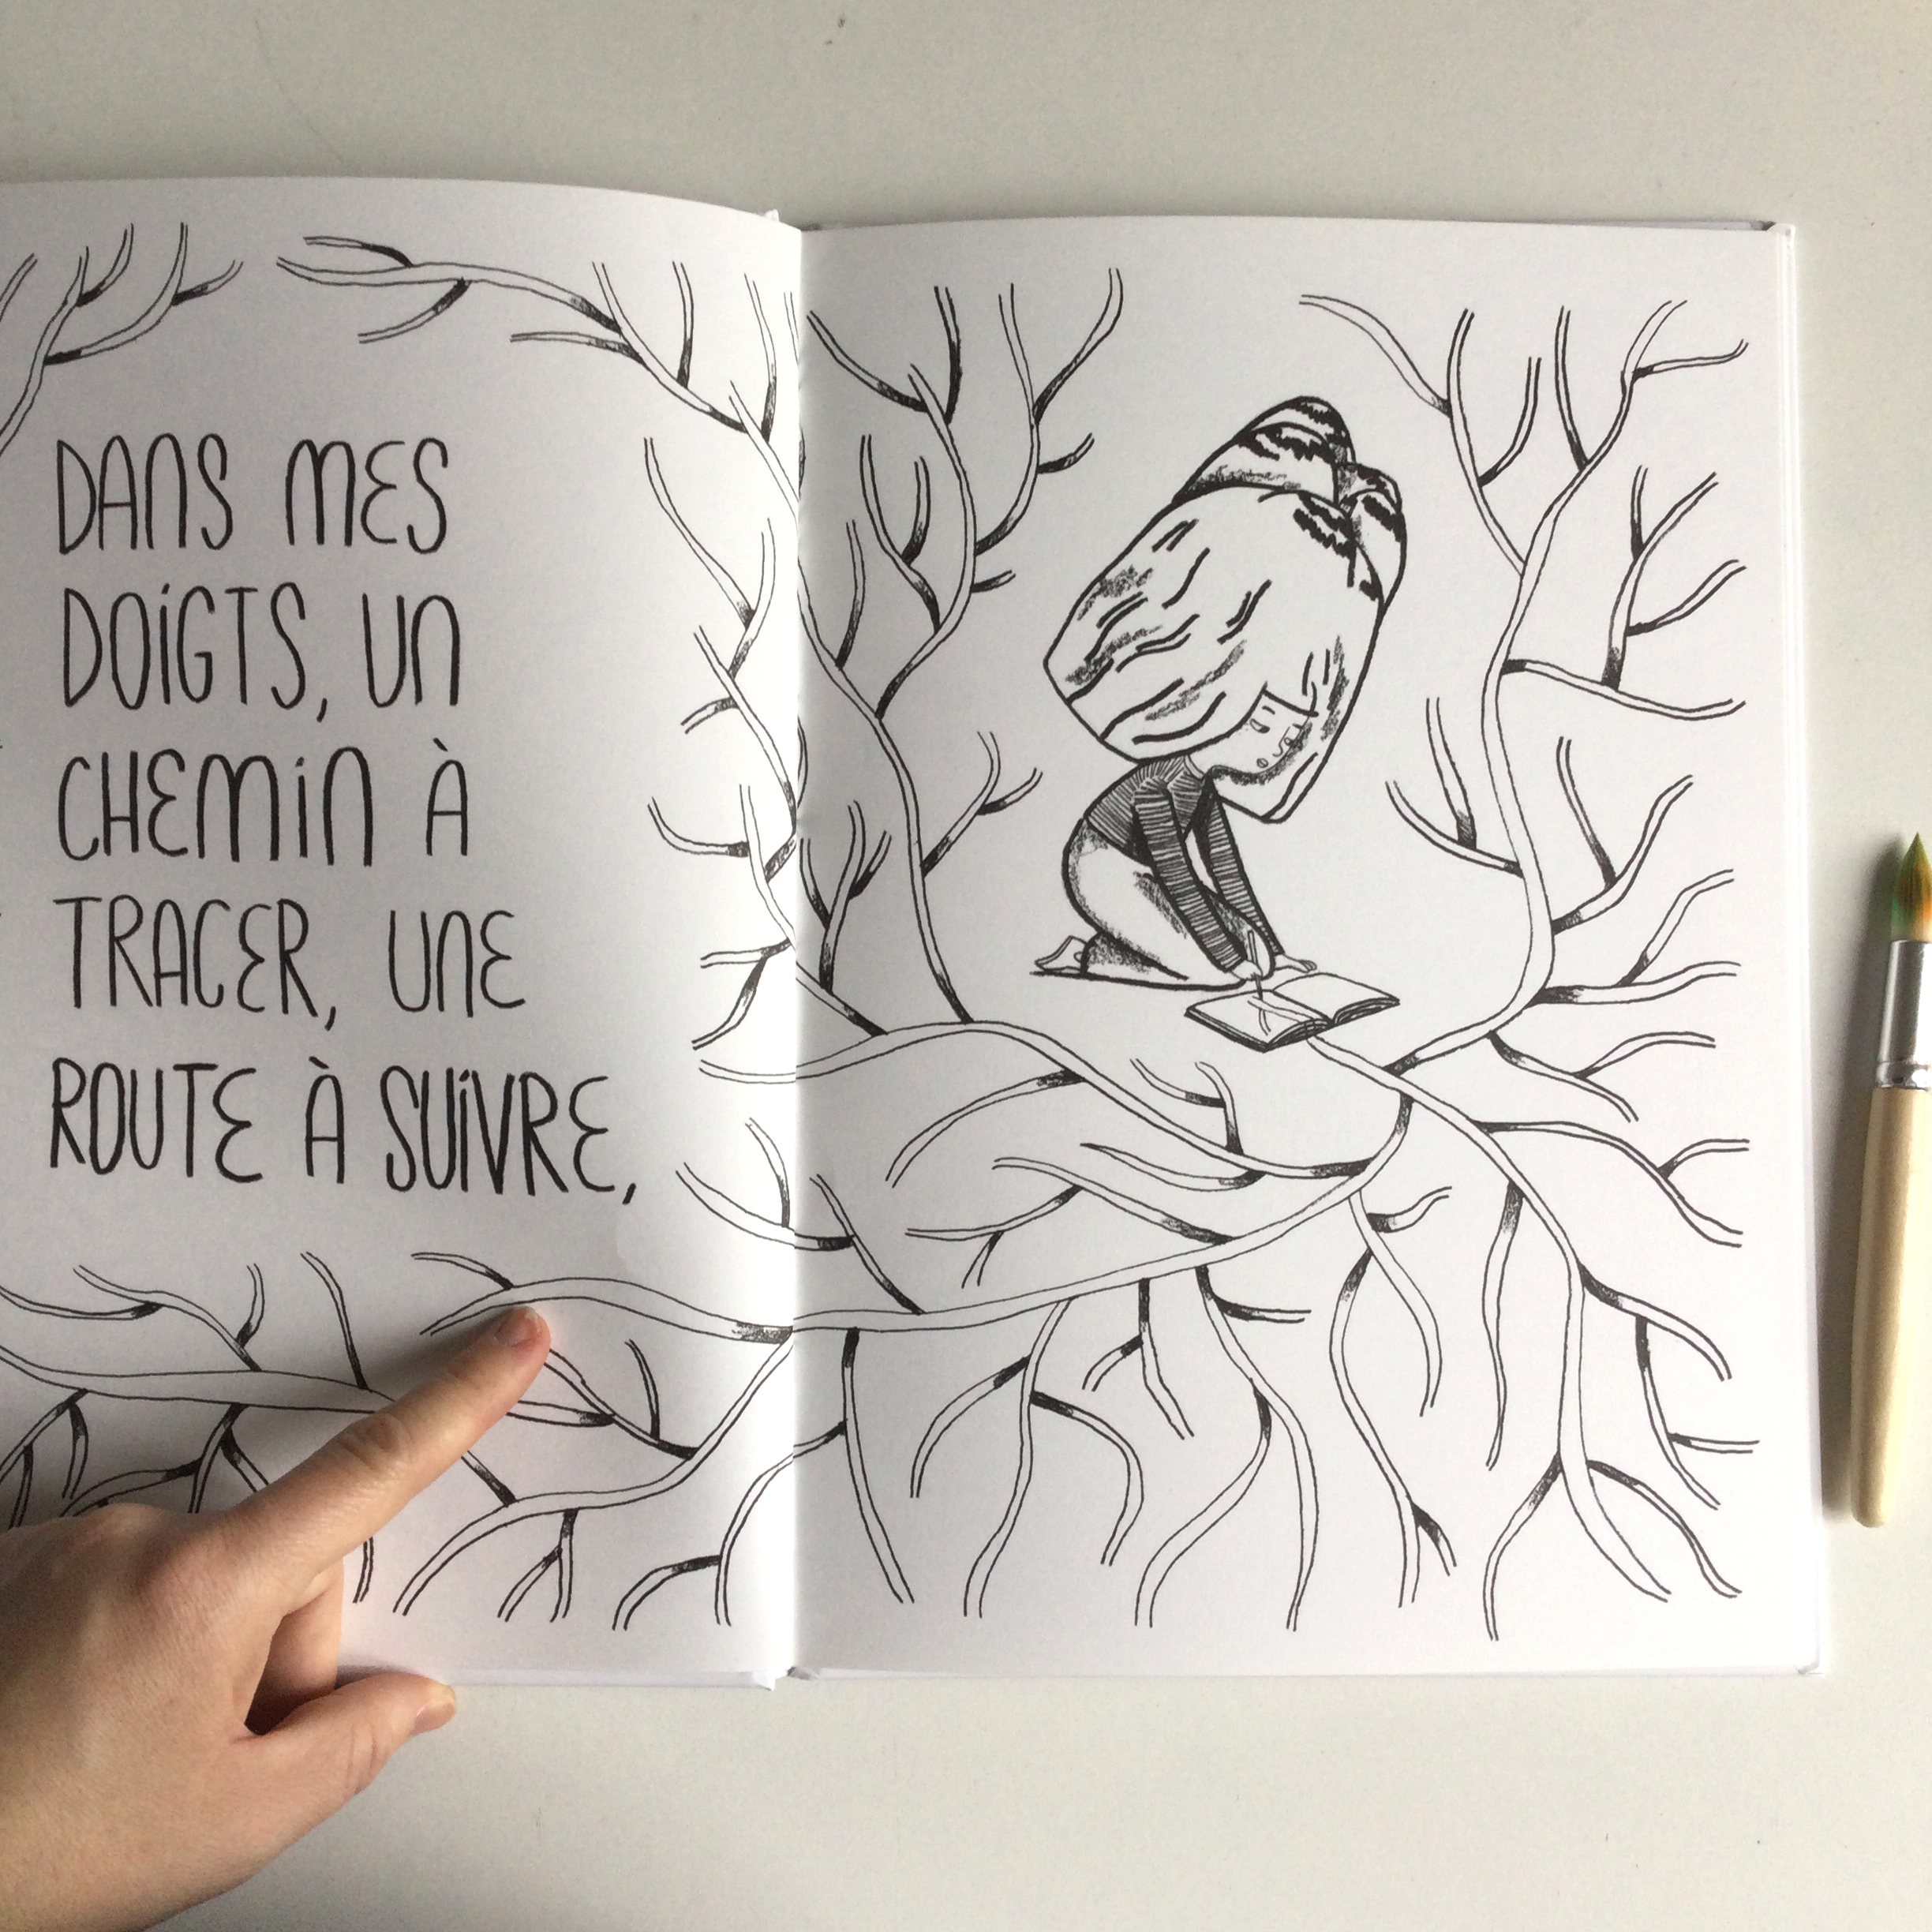 DANS MES
DOiGTS, UN
CHEMiN À
TRACER, UNE
ROUTE À SUiVRE,